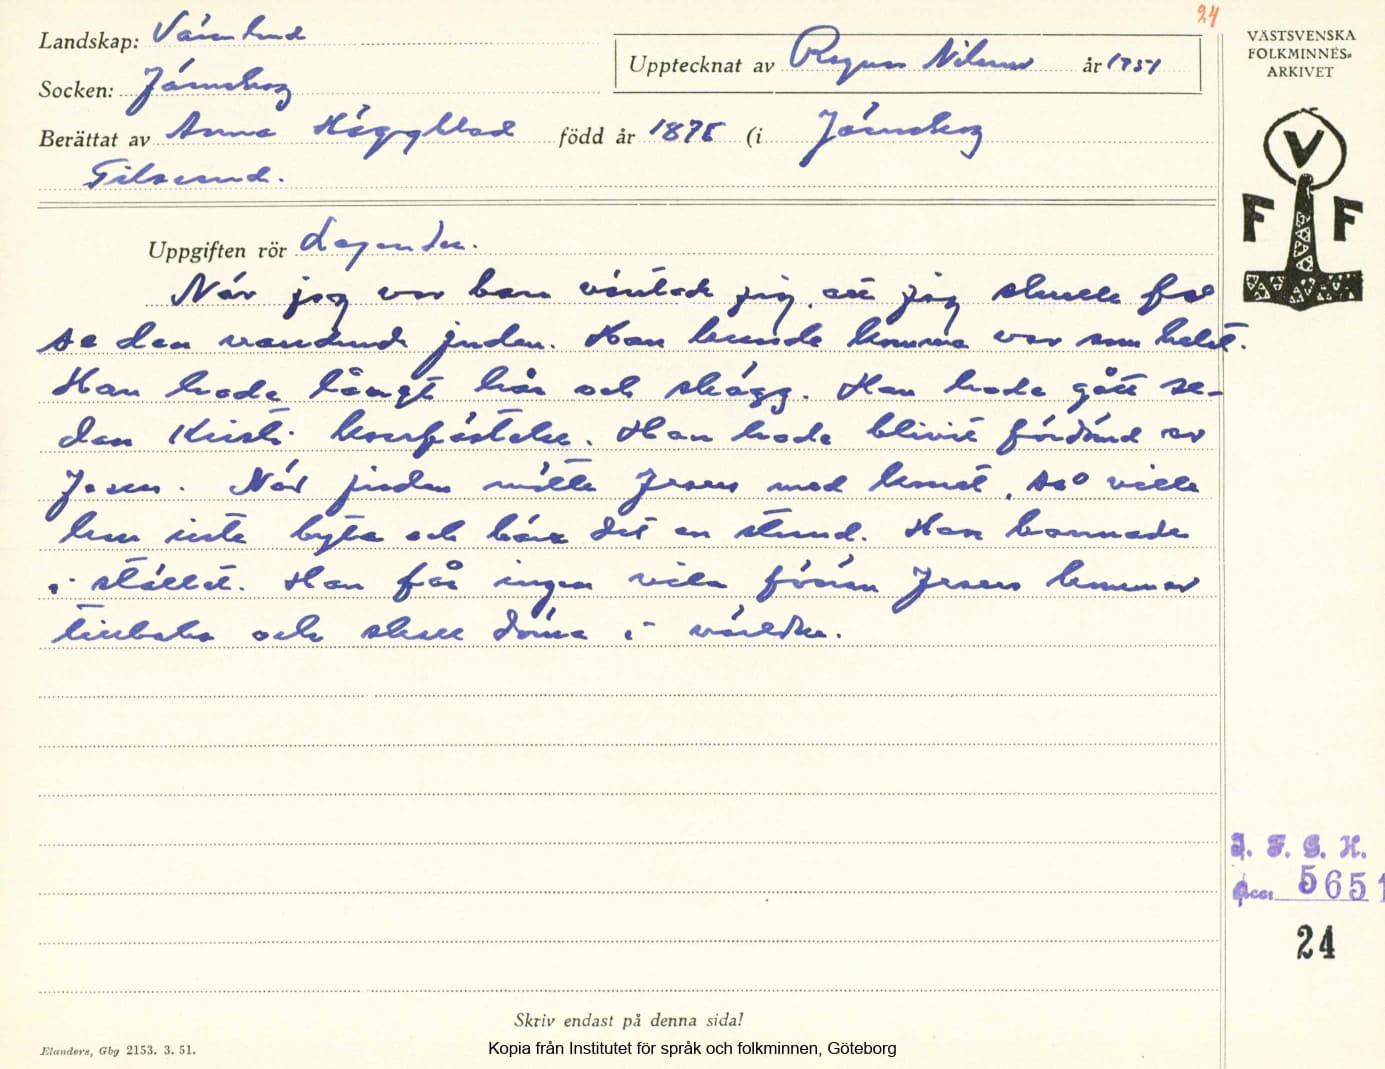 24
Landskap: Värmland
VÄSTSVENSKA
FOLKMINNES-
ARKIVET
Upptecknat av Ragnar Nilsson år 1951
Socken: Järnskog
Berättat av Anna Häggblad född år 1875 (i Järnskog
V
F F
Uppgiften rör Legender.
När jag var barn väntade jag, att jag skulle få
se den vandrande juden. Han kunde komma var som helst.
Han hade långt hår och skägg. Han hade gått se-
dan Kristi korsfästelse. Han hade blivit fördömd av
Jesus. När juden mötte Jesus med korset, så ville
han inte byta och bära det en stund. Han bannade
i stället. Han får ingen vila förrän Jesus kommer
tillbaka och skall döma i världen.
I. F. G. H.
acc. 5651
24
Skriv endast på denna sida!
Elanders, Gbg 2153. 3. 51.
Kopia från Institutet för språk och folkminnen, Göteborg